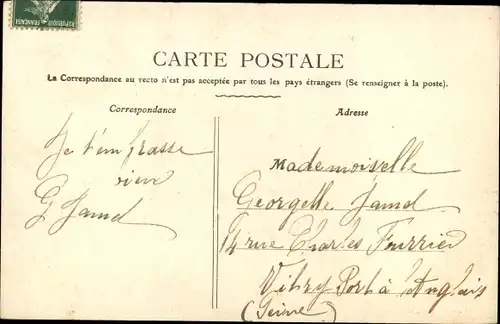 CARTE POSTALE
La Correspondance au recto n'est pas acceptée par tous les pays étrangers (Se renseigner à la poste).
Correspondance
Adresse
Je t'embrasse
bien
G Jamel
Mademoiselle
Georgette Jamel
14 rue Charles Fourrier
Vitry Port à Anglais
(Seine)